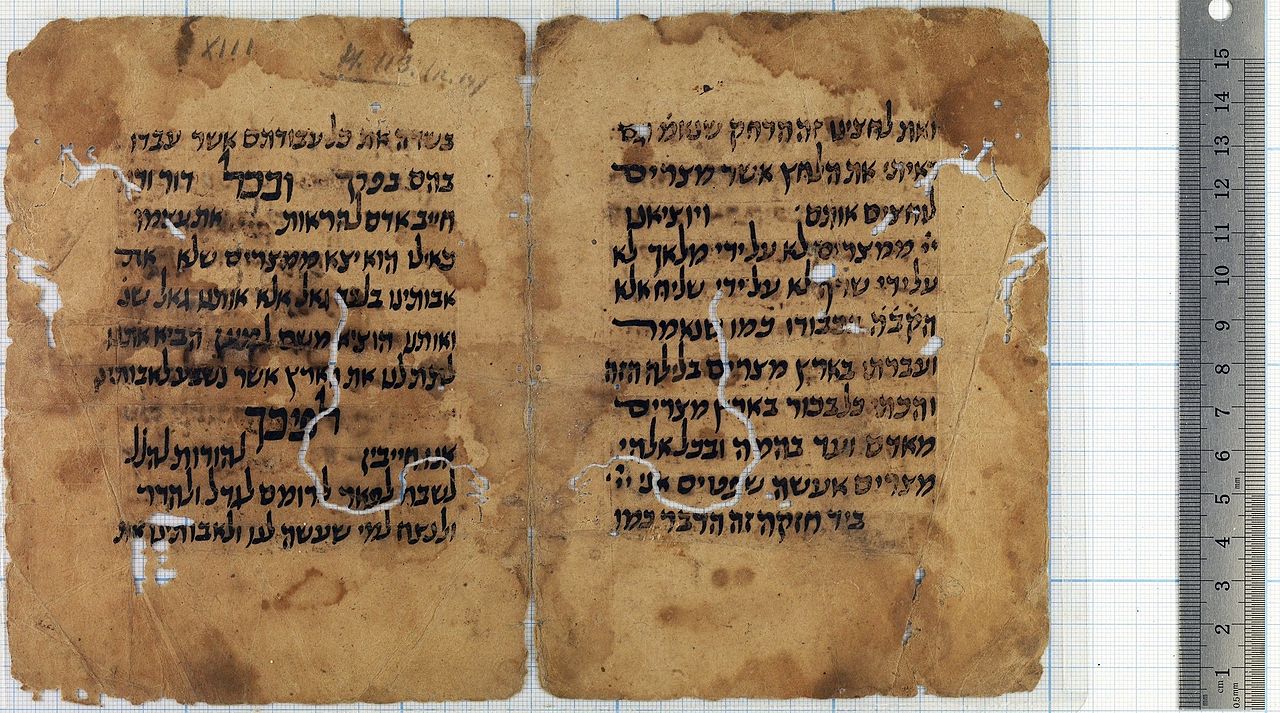 XIII
ואת לחצינו זה הדחק גם
ראיתי את הלחץ אשר מצרים
לוחצים אותם ויוציאנו
יי ממצרים לא על ידי מלאך לא
על ידי שרף לא על ידי שליח אלא
הקבה בכבודו כמו שנאמר
ועברתי בארץ מצרים בלילה הזה
והכתי כל בכור בארץ מצרים
מאדם ועד בהמה ובכל אלהי
מצרים אעשה שפטים אני יי
ביד חזקה זה הדבר כמו
בשדה את כל עבודתם אשר עבדו
בהם בפרך ובכל דור ודו
חייב אדם להראות את עצמו
כאילו הוא יצא ממצרים שלא את
אבותינו בלבד גאל אלא אותנו גאל שנ
ואותנו הוציא משם למען הביא אתנו
לתת לנו את הארץ אשר נשבע לאבותינו
לפיכך
אנו חייבין להודות להלל
לשבח לפאר לרומם לגדל ולהדר
ולנצח למי שעשה לנו ולאבותינו את
15
14
13
12
11
10
9
8
7
6
5
4
3
2
1
cm
mm